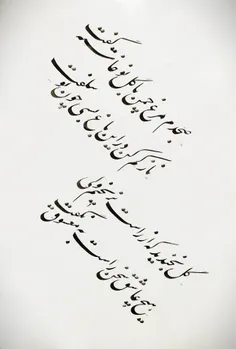 صبحدم مرغ چمن با گل نوخاسته گفت
ناز کم کن که در این باغ بسی چون تو شکفت
گل بخندید که از راست نرنجیم ولی
هیچ عاشق سخن سخت به معشوق نگفت